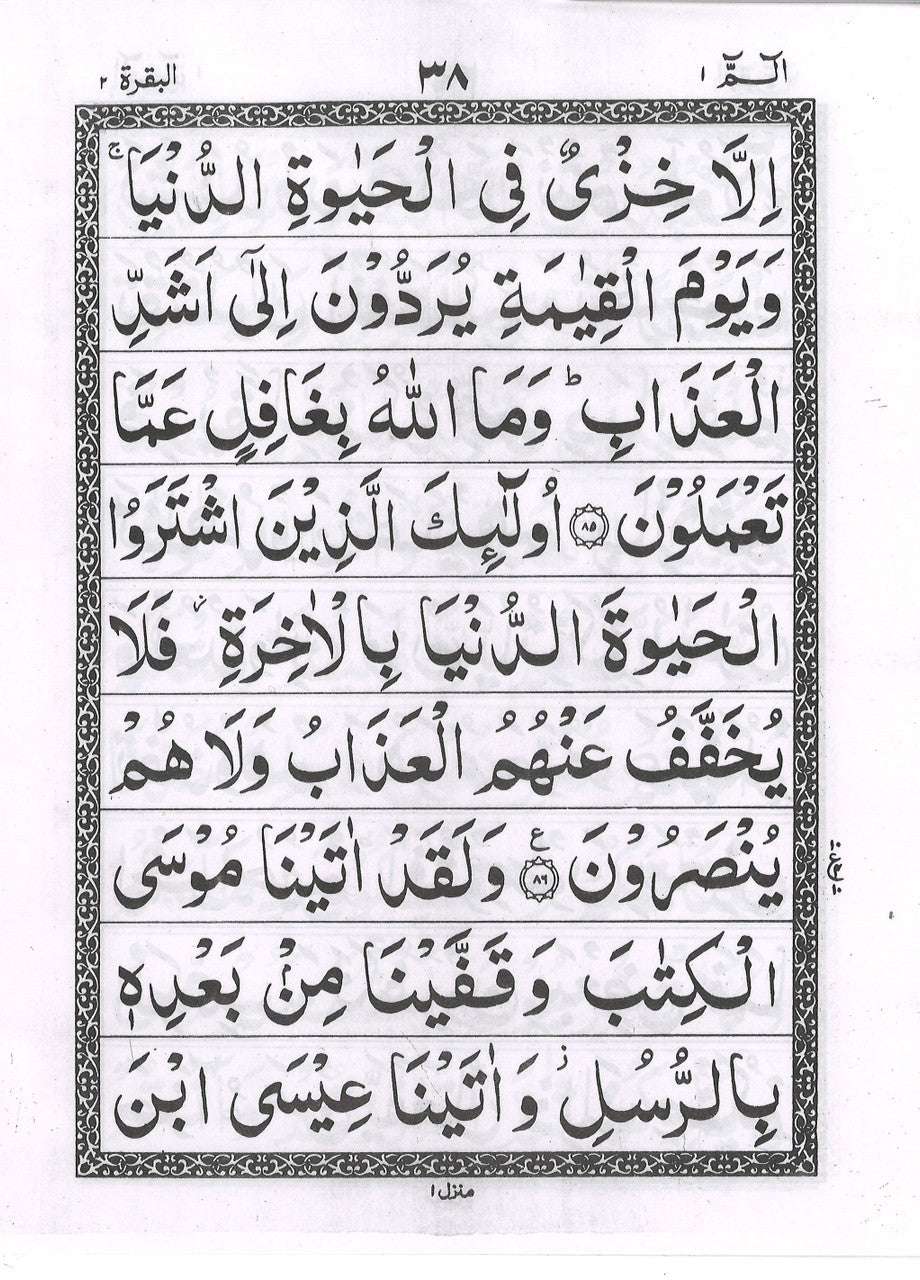 الٓـمّٓ ١ ٣٨ البقرة ٢
اِلَّا خِزْیٌ فِی الْحَیٰوةِ الدُّنْیَا ۚ
وَیَوْمَ الْقِیٰمَةِ یُرَدُّوْنَ اِلٰۤی اَشَدِّ
الْعَذَابِ ؕ وَمَا اللّٰهُ بِغَافِلٍ عَمَّا
تَعْمَلُوْنَ ۝٨٥ اُولٰٓئِكَ الَّذِیْنَ اشْتَرَوُا
الْحَیٰوةَ الدُّنْیَا بِالْاٰخِرَةِ ؗ فَلَا
یُخَفَّفُ عَنْهُمُ الْعَذَابُ وَلَا هُمْ
یُنْصَرُوْنَ ۝٨٦ ع وَلَقَدْ اٰتَیْنَا مُوْسَی
الْكِتٰبَ وَقَفَّیْنَا مِنْۢ بَعْدِهٖ
بِالرُّسُلِ ؗ وَاٰتَیْنَا عِیْسَی ابْنَ
منزل ١